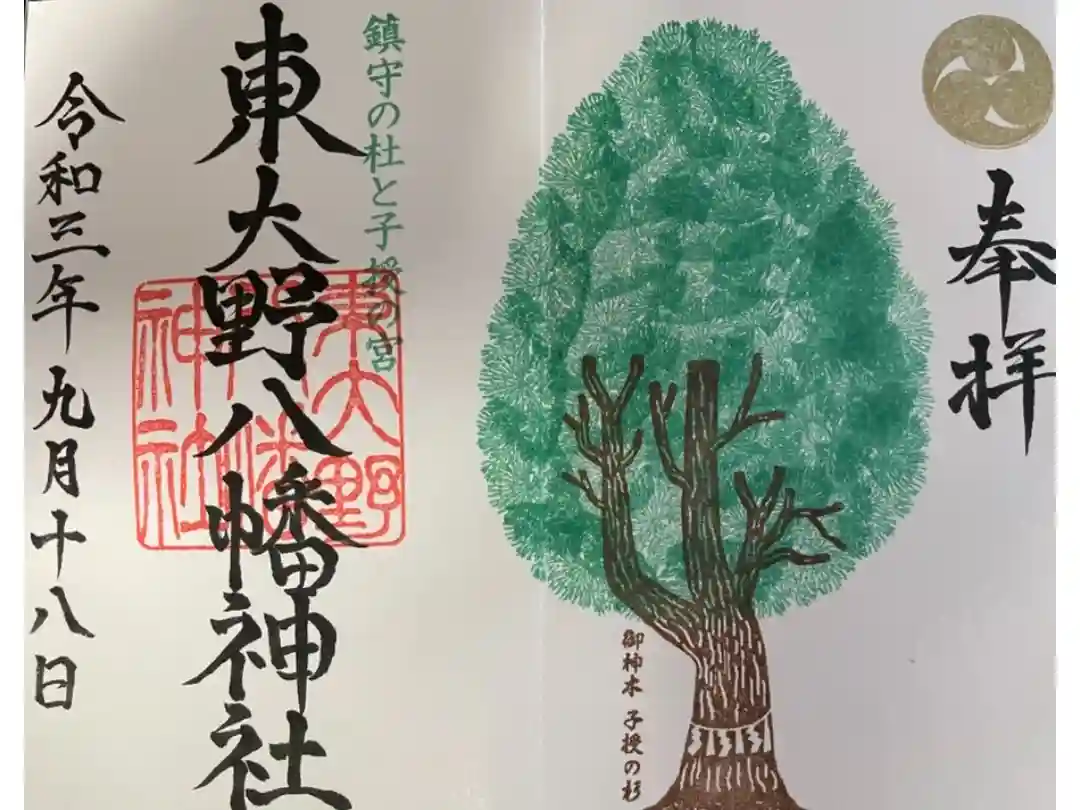 奉拝
御神木 子授の杉
鎮守の杜と子授の宮
東大野八幡神社
東大野
八幡
神社
令和三年九月十八日